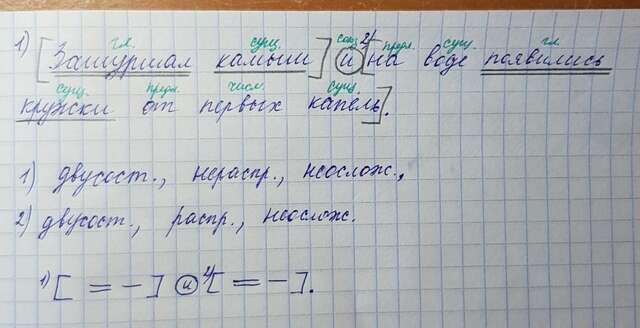 гл. сущ. союз 2) предл. сущ. гл.
1) [Зашуршал камыш] и [на воде появились
сущ. предл. числ. сущ.
кружки от первых капель].
1) двусост., нераспр., неослож.,
2) двусост., распр., неослож.
1) [ = – ] и 2) [ = – ].